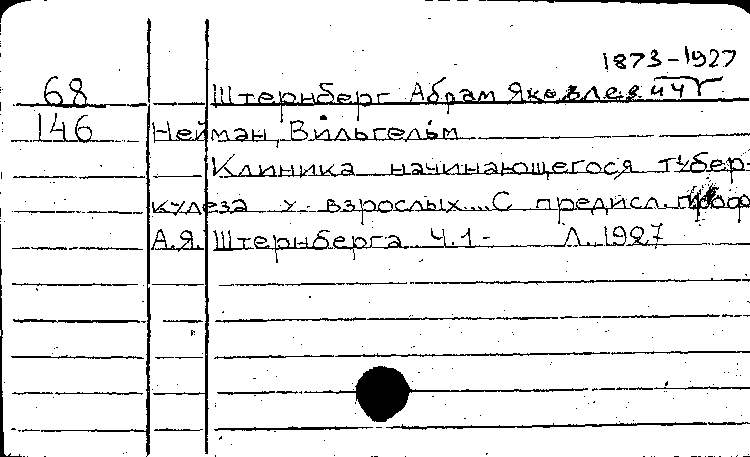 1873-1927
68 Штернберг Абрам Яковлевич
146 Нейман, Вильгельм
Клиника начинающегося тубер-
кулеза у взрослых...С предисл. проф
А.Я. Штернберга Ч.1- Л., 1927